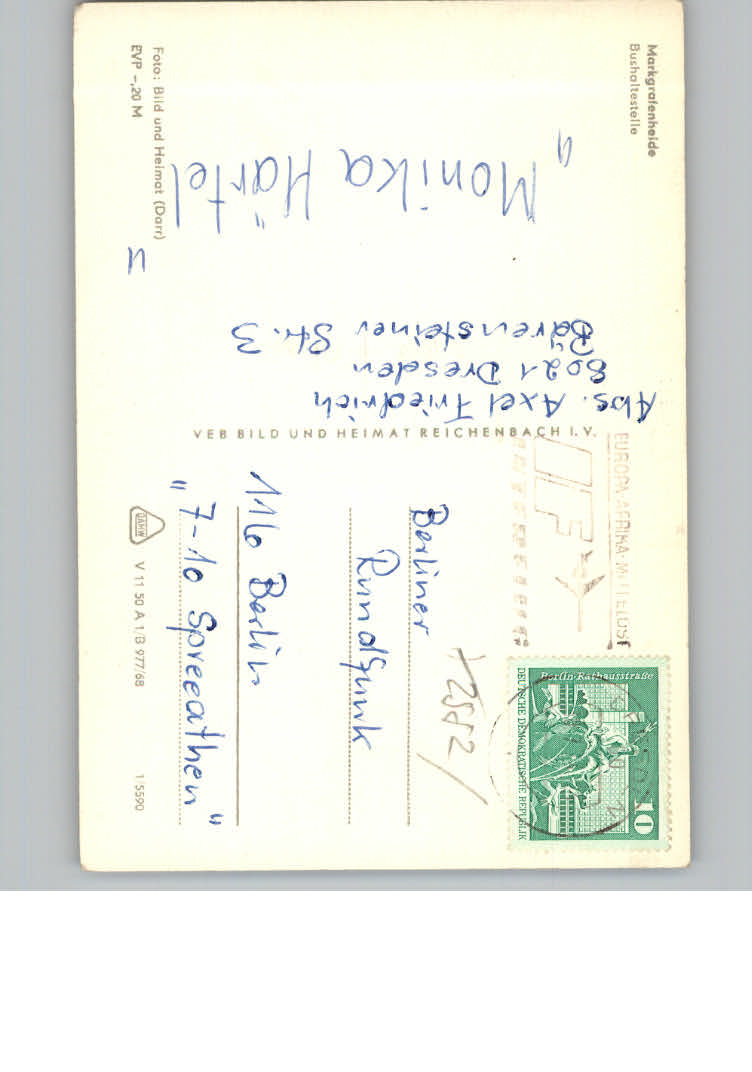 Markgrafenheide
Bushaltestelle
"Monika Härtel"
Foto: Bild und Heimat (Darr)
EVP -,20 M
Abs. Axel Friedrich
8021 Dresden
Bärensteiner Str. 3
VEB BILD UND HEIMAT REICHENBACH I. V.
EUROPA·AFRIKA·MITTELOST
IF
Berlin-Rathausstraße
10
DEUTSCHE DEMOKRATISCHE REPUBLIK
2552
Berliner
Rundfunk
116 Berlin
"7-10 Spreeathen"
DAMW
V 11 50 A 1/B 977/68
1/5590